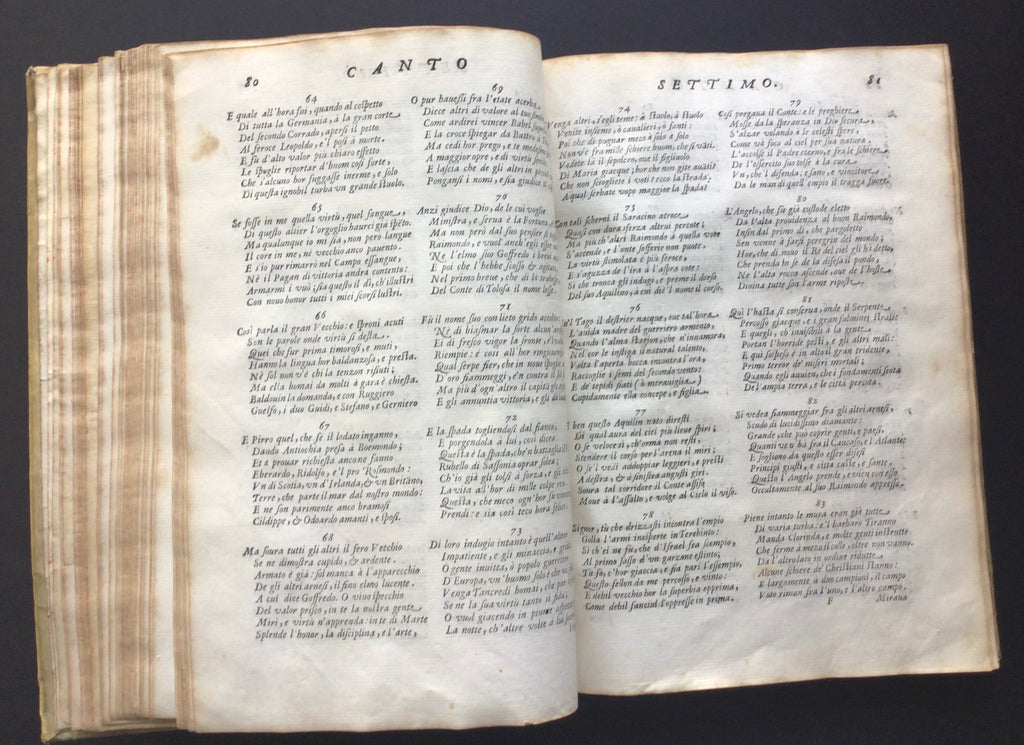 80
CANTO
64
E quale all'hora fui, quando al cospetto
Di tutta la Germania, à la gran corte
Del secondo Corrado, apersi il petto
Al feroce Leopoldo, e'l posi à morte.
E fù d'alto valor più chiaro effetto
Le spoglie riportar d'huom così forte,
Che s'alcuno hor fuggasse inerme, e solo
Di questa ignobil turba un grande stuolo.
65
Se fosse in me quella virtù, quel sangue,
Di questo altier l'orgoglio haurei già spēto.
Ma qualunque io mi sia, non però langue
Il core in me, ne vecchio anco pauento.
E s'io pur rimarrò nel Campo essangue,
Nè il Pagan di vittoria andrà contento:
Armarmi i vuò; sia questo il dì, ch'illustri
Con nouo honor tutti i miei scorsi lustri.
66
Così parla il gran Vecchio: e sproni acuti
Son le parole onde virtù si desta.
Quei che fur prima timorosi, e muti,
Hanno la lingua hor baldanzosa, e presta.
Nè sol non v'è chi la tenzon rifiuti;
Ma ella homai da molti à gara è chiesta.
Baldouin la domanda, e con Ruggiero
Guelfo, i duo Guidi, e Stefano, e Gerniero
67
E Pirro quel, che fe il lodato inganno,
Dando Antiochia presa à Boemondo;
Et à prouar richiesta ancone fanno
Eberardo, Ridolfo, e'l prò Rosmondo:
Vn di Scotia, vn d'Irlanda, & vn Britāno,
Terre, che parte il mar dal nostro mondo:
E ne son parimente anco bramosi
Gildippe, & Odoardo amanti, e sposi.
68
Ma soura tutti gli altri il fero Vecchio
Se ne dimostra cupido, & ardente.
Armato è già: sol manca à l'apparecchio
De gli altri arnesi, il fino elmo lucente.
A cui dice Goffredo. O viuo specchio
Del valor prisco, in te la nostra gente
Miri, e virtù n'apprenda: in te di Marte
Splende l'honor, la disciplina, e l'arte,
69
O pur hauessi fra l'etate acerba
Diece altri di valor al tuo
Come ardirei vincer Babel
E la croce spiegar da Battro
Ma cedi hor prego, e te medesmo
A maggior opre, e di virtù
E lascia che de gli altri in
Ponganſi i nomi, e sia giudice
70
Anzi giudice Dio, de le cui voglie
Ministra, e serua è la Fortuna,
Ma non però dal suo pensier
Raimondo, e vuol anch'egli
Ne l'elmo suo Goffredo i breui
E poi che l'hebbe scosso & agitato,
Nel primo breue, che di là trahesse,
Del Conte di Tolosa il nome lesse.
71
Fù il nome suo con lieto grido
Nè di biasmar la sorte alcun
Ei di fresco vigor la fronte, e'l
Riempie: e così all'hor ringiouenisce
Qual serpe fier, che in noue spoglie
D'oro fiammeggi, e'n contra il
Ma più d'ogn'altro il capitā gli
E gli annuntia vittoria, e gli dà
72
E la spada togliendosi dal fianco,
E porgendola à lui, così dicea.
Questa è la spada, che'n battaglia
Rubello di Sassonia oprar solea;
Ch'io già gli tolsi à forza, e gli
La vita all'hor di mille colpe
Questa, che meco ogn'hor fù
Prendi: e sia così teco hora felice.
73
Di loro indugio intanto è quell'altero
Impatiente, e gli minaccia, e grida.
O gente inuitta, ò popolo guerriero
D'Europa, vn'huomo solo è che
Venga Tancredi homai, che par
Se ne la sua virtù tanto si fida;
O vuol giacendo in piume aspettar
La notte, ch'altre volte à lui
SETTIMO.
81
74
Venga altri, s'egli teme: à stuolo, à stuolo
Venite insieme, ò caualieri, ò fanti:
Poi che di pugnar meco à solo à solo
Non v'è fra mille schiere huom, che si vāti.
Vedete là il sepolcro, oue il figliuolo
Di Maria giacque; hor che non gite auāti?
Che non sciogliete i voti? ecco la strada,
A qual serbate vopo maggior la spada?
75
Con tali scherni il Saracino atroce
Quasi con dura sferza altrui percote;
Ma più ch'altri Raimondo à quella vote
S'accende, e l'onte sofferir non puote.
La virtù stimolata è più feroce,
E s'aguzza de l'ira à l'aspra cote:
Si che tronca gli indugi, e preme il dorso
Del suo Aquilino, à cui diè 'l nome il corso.
76
Sul Tago il destrier nacque, oue tal'hora
L'auida madre del guerriero armento,
Quando l'alma stagion, che n'innamora,
Nel cor le instiga il natural talento,
Volta l'aperta bocca incontra l'ora,
Raccoglie i semi del secondo vento:
E de' tepidi fiati (ò merauiglia)
Cupidamente ella concepe, e figlia.
77
E ben questo Aquilin nato diresti
Di qual aura del ciel più lieue spiri;
O se veloce sì, ch'orma non resti,
Stendere il corso per l'arena il miri;
O se 'l vedi addoppiar leggieri, e presti
A destra, & à sinistra angusti giri.
Soura tal corridore il Conte assiso
Moue à l'assalto, e volge al Cielo il viso.
78
Signor, tù che drizzasti incontra l'empio
Golia l'armi inesperte in Terebinto:
Si ch'ei ne fù, che d'Israel fea scempio,
Al primo sasso d'un garzone estinto;
Tù fa, c'hor giaccia, e sia pari l'essempio,
Questo fellon da me percosso, e vinto:
E debil vecchio hor la superbia opprima,
Come debil fanciul l'oppresse in prima.
79
Così pregaua il Conte: e le preghiere
Mosse da la speranza in Dio secura,
S'alzar volando à le celesti spere,
Come và foco al ciel per sua natura;
L'accolse il Padre eterno, e fra le schiere
De l'essercito suo tolse à la cura
Vn, che'l difenda: e sano, e vincitore
Da le man di quell'empio il tragga fuore.
80
L'Angelo, che fù già custode eletto
Da l'alta prouidenza al buon Raimondo,
Insin dal primo dì, che pargoletto
Sen venne à farsi peregrin del mondo;
Hor, che di nouo il Re del ciel gli hà detto,
Che prenda in se de la difesa il pondo,
Ne l'alta rocca ascende, oue de l'hoste
Diuina tutte son l'arme riposte.
81
Quì l'hasta si conserua, onde il Serpente
Percosso giacque, e i gran fulminei strali:
E quegli, ch'inuisibili à la gente
Portan l'horride pesti, e gli altri mali:
E qui sospeso è in alto il gran tridente,
Primo terror de' miseri mortali;
Quando egli auuien, che i fondamenti scota
De l'ampia terra, e le città percota.
82
Si vedea fiammeggiar fra gli altri arnesi,
Scudo di lucidissimo diamante:
Grande, che può coprir genti, e paesi,
Quanti ve n'hà fra il Caucaso, e l'Atlante;
E sogliono da questo esser difesi
Principi giusti, e città caste, e sante.
Questo l'Angelo prende, e vien con esso
Occultamente al suo Raimondo appresso.
83
Piene intanto le mura eran già tutte
Di varia turba: e'l barbaro Tiranno
Manda Clorinda, e molte genti instrutte
Che ferme à mezo il colle, oltre non vanno.
Da l'altro lato in ordine ridutte
Alcune schiere de' Christiani stanno:
E largamente à duo campioni, il campo
Voto riman fra l'uno, e l'altro campo.
F
Miraua